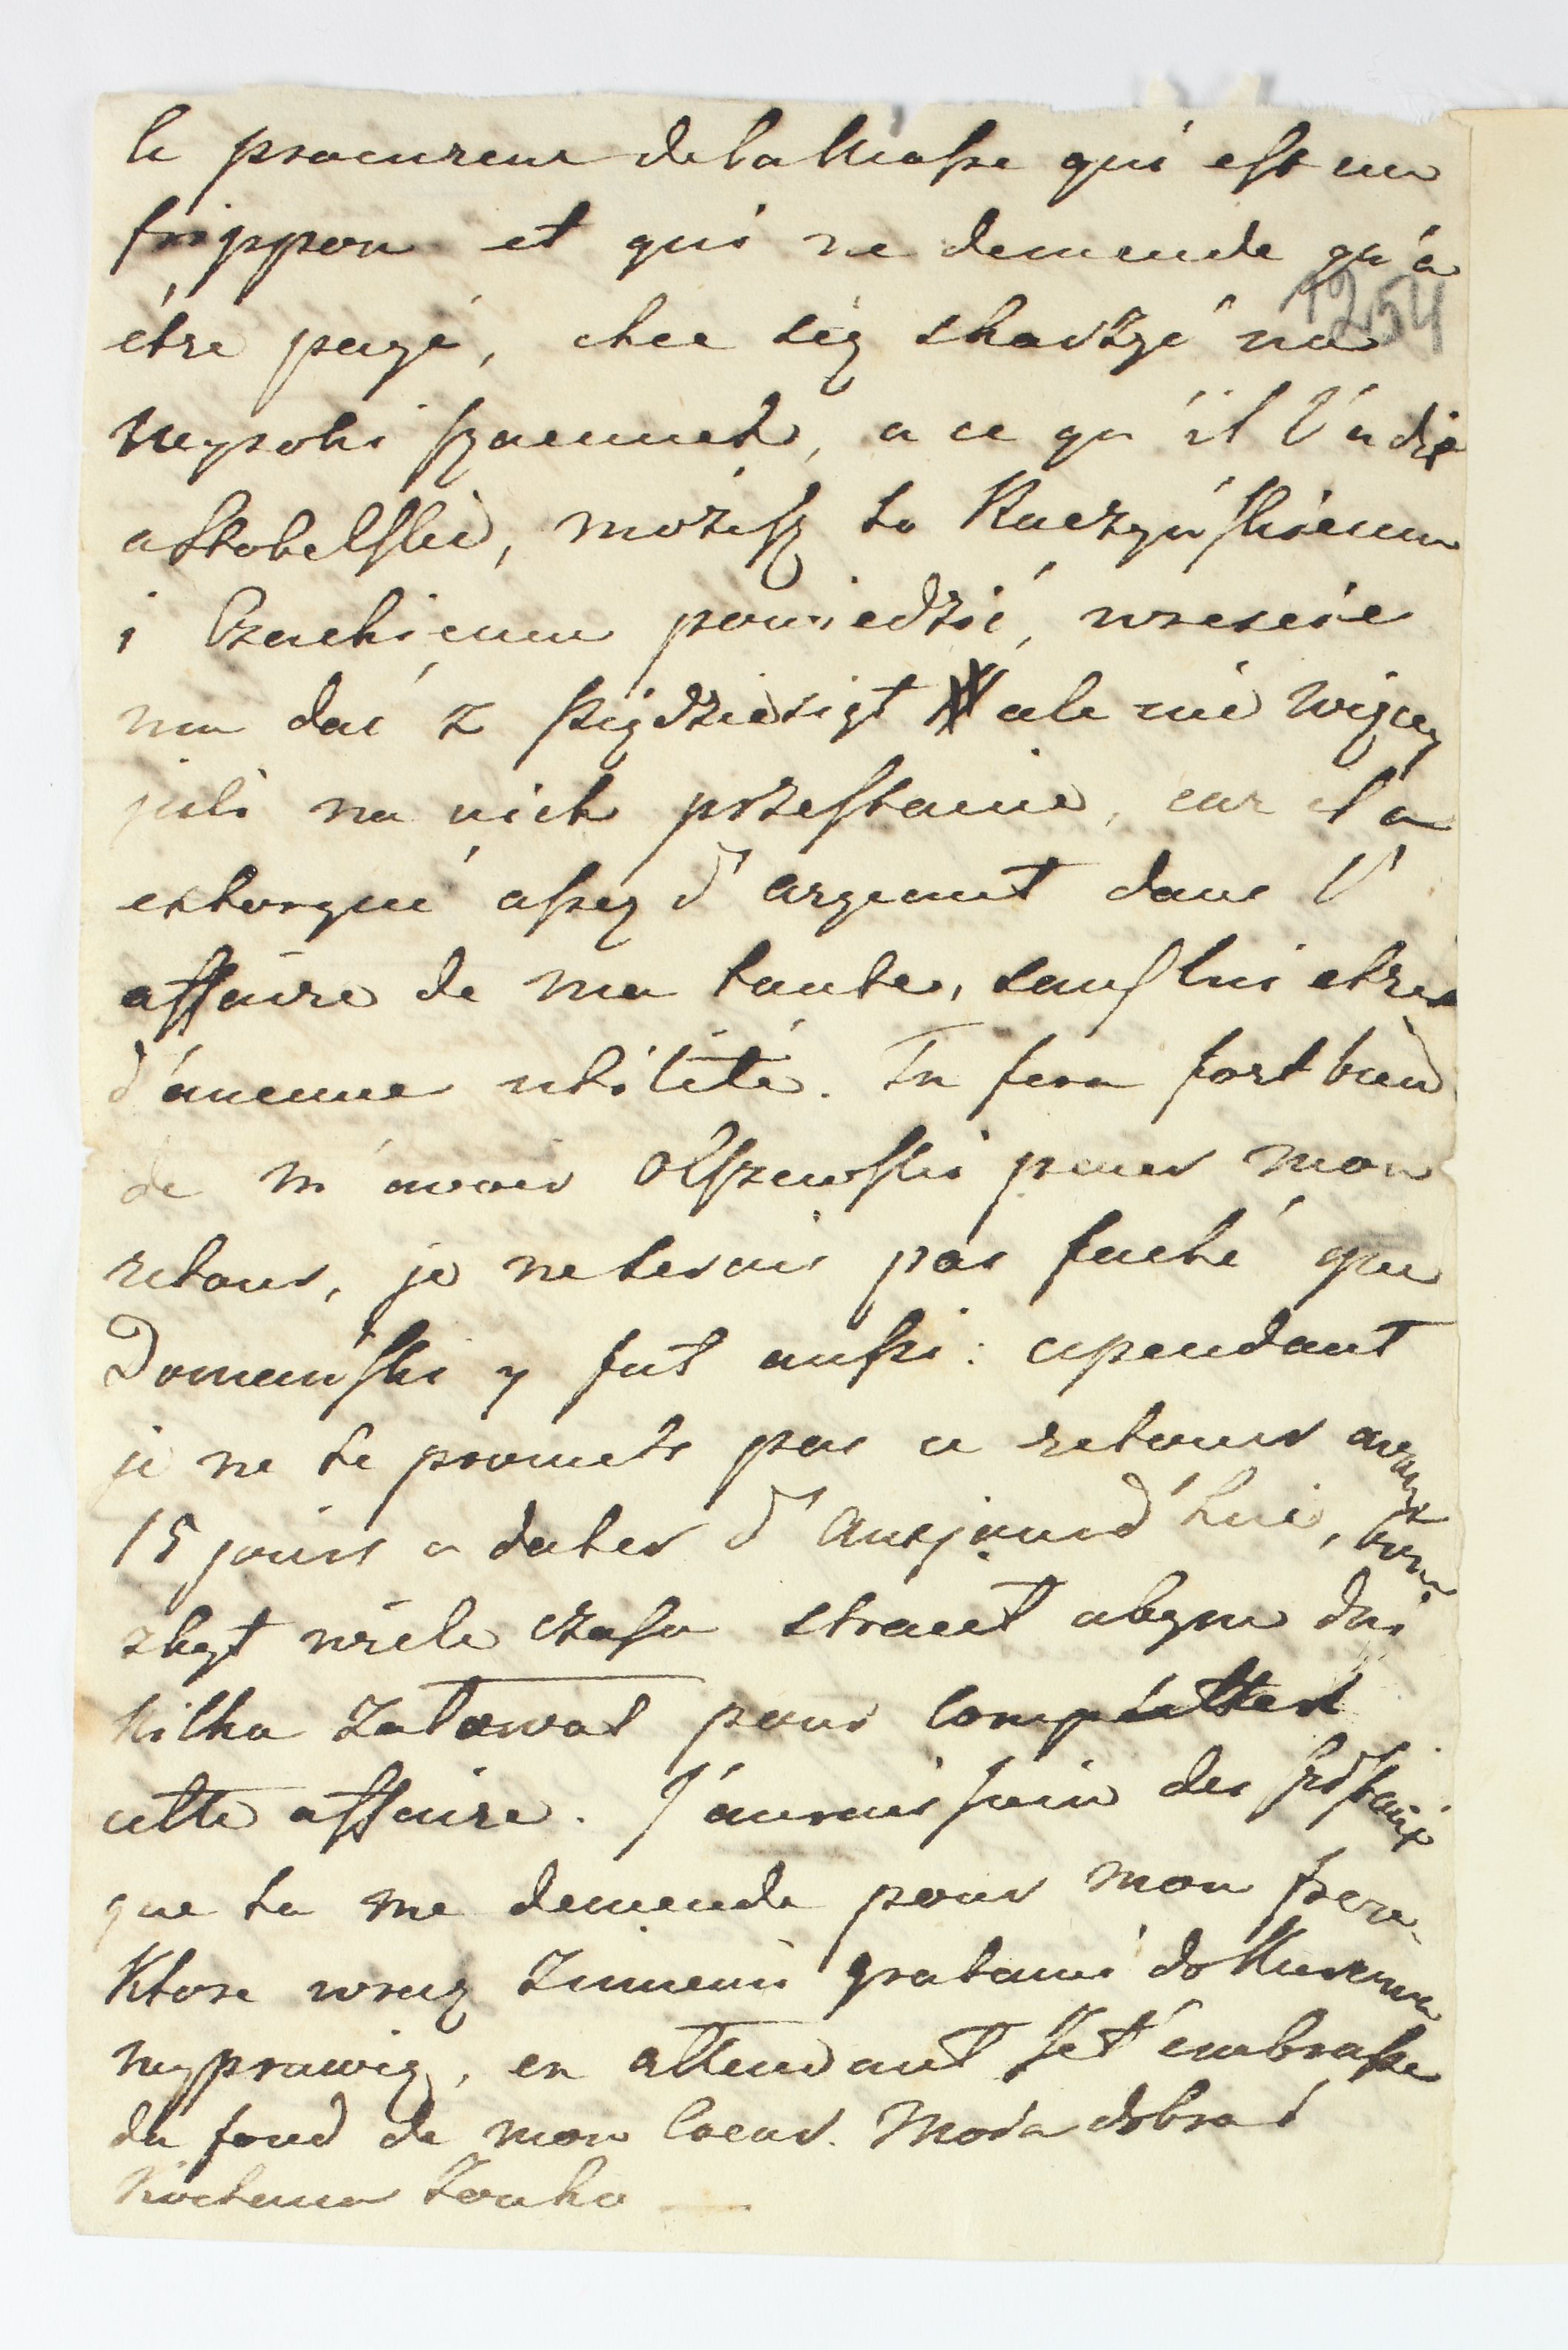 le procureur de la Masse qui est un
frippon et qui ne demende qu'a
1254
étre payé, chce się skarżyć na
wysoki szacunek, a ce qu'il l'a dit
a Skobelski, możesz to Kuczyńskiemu
i Czackiemu powiedzić, wreście
mu dać z pięćdziesiąt ale nie więcey
jesli na nich przestanie, car il a
extorqué assez d'argeant dans l'
affaire de ma tante, sans lui etre
d'aucune utilité. Tu fera fort bien
de m'avoir Olszewski pour mon
retour, je ne serais pas faché que
Domański y fut aussi: cependant
je ne te promets pas ce retour avant
15 jours a dater d'aujourd'hui, bom
zbyt wiele czasu stracił abym dni
kilka żałował pour completter
cette affaire. J'aurais soin des
que tu me demende pour mon frere
ktore wraz z innemi gratami do
wyprawię, en attendant je t'embrasse
du fond de mon Coeur. Moia dobra i
kochana Żonko —